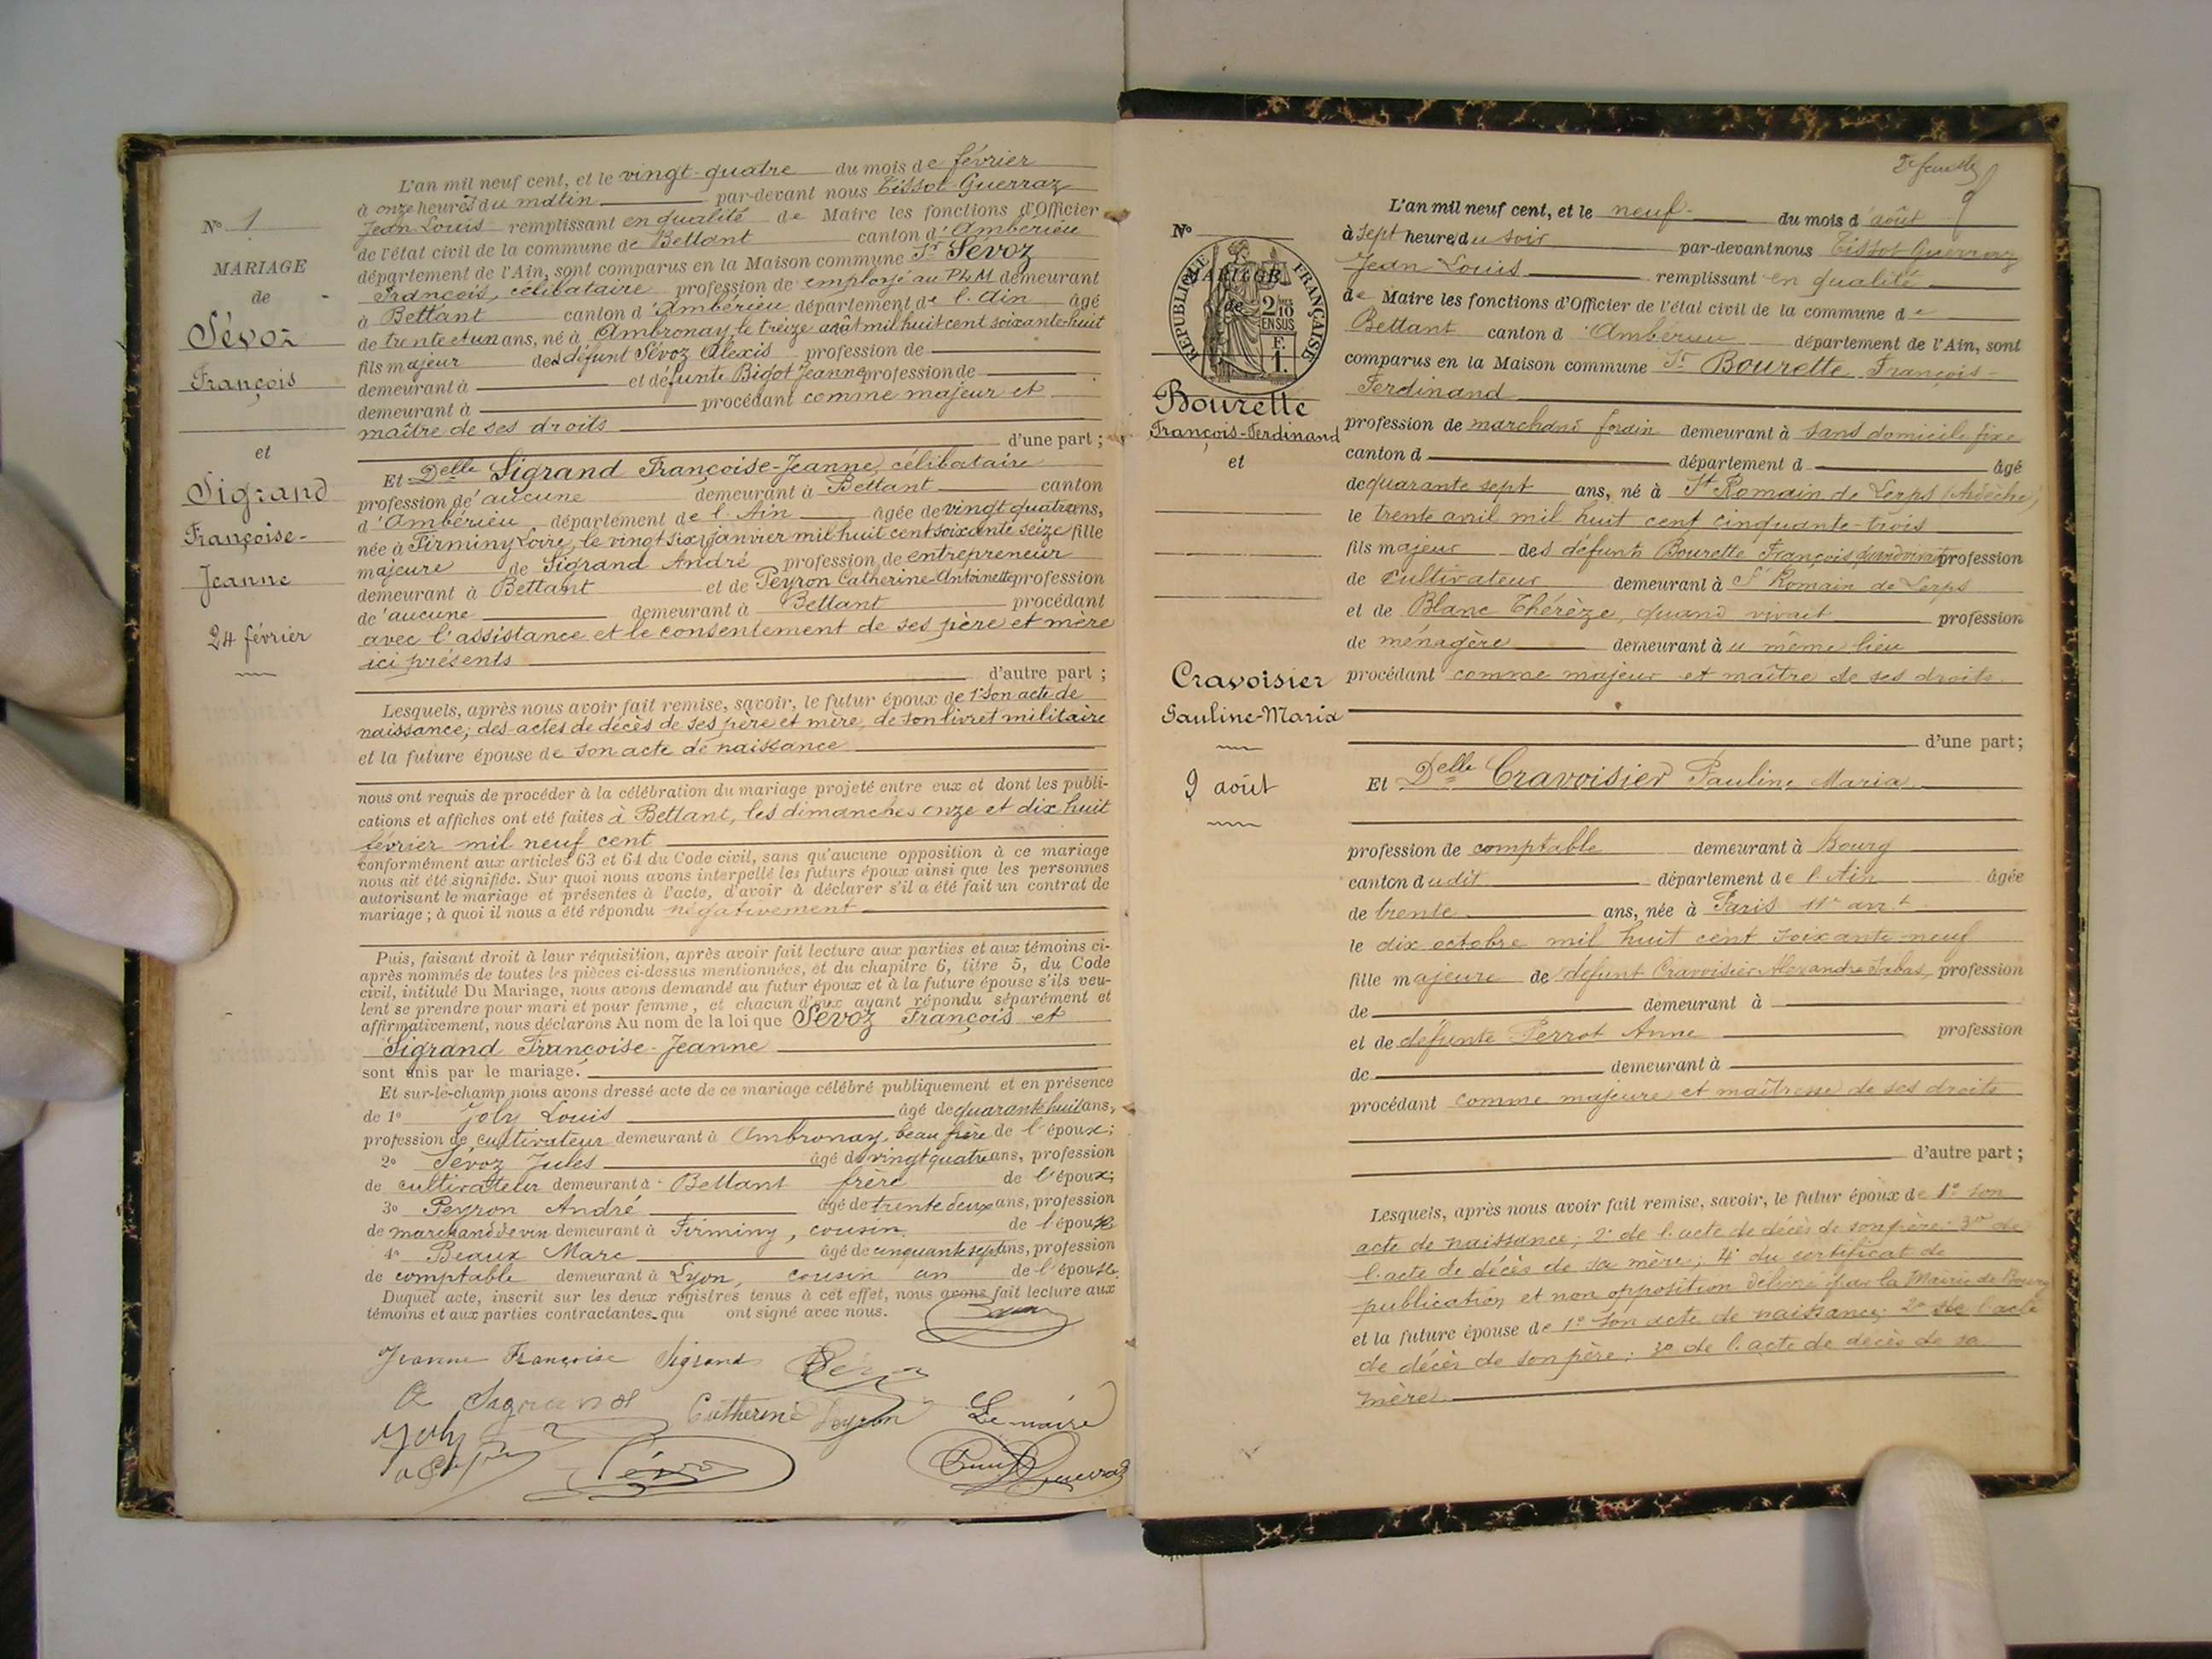 L'an mil neuf cent, et le vingt-quatre du mois de février
à onze heures du matin par-devant nous Tissot-Guerraz
Jean Louis remplissant en qualité de Maire les fonctions d'Officier
de l'état civil de la commune de Bettant canton d'Ambérieu
département de l'Ain, sont comparus en la Maison commune Sr Sévoz
François, célibataire profession de employé au PLM demeurant
à Bettant canton d'Ambérieu département de l'Ain âgé
de trente et un ans, né à Ambronay le treize août mil huit cent soixante huit
fils majeur des défunt Sévoz Alexis profession de
demeurant à et défunte Bigot Jeanne profession de
demeurant à procédant comme majeur et
maître de ses droits
d'une part ;
Et Delle Sigrand Françoise-Jeanne, célibataire
profession de aucune demeurant à Bettant canton
d'Ambérieu département de l'Ain âgée de vingt quatre ans,
née à Firminy Loire, le vingt six janvier mil huit cent soixante seize fille
majeure de Sigrand André profession de entrepreneur
demeurant à Bettant et de Peyron Catherine-Antoinette profession
de aucune demeurant à Bettant procédant
avec l'assistance et le consentement de ses père et mère
ici présents
d'autre part ;
Lesquels, après nous avoir fait remise, savoir, le futur époux de 1° son acte de
naissance; des actes de décès de ses père et mère, de son livret militaire
et la future épouse de son acte de naissance
nous ont requis de procéder à la célébration du mariage projeté entre eux et dont les publi-
cations et affiches ont été faites à Bettant, les dimanches onze et dix huit
février mil neuf cent
conformément aux articles 63 et 64 du Code civil, sans qu'aucune opposition à ce mariage
nous ait été signifiée. Sur quoi nous avons interpellé les futurs époux ainsi que les personnes
autorisant le mariage et présentes à l'acte, d'avoir à déclarer s'il a été fait un contrat de
mariage ; à quoi il nous a été répondu négativement
Puis, faisant droit à leur réquisition, après avoir fait lecture aux parties et aux témoins ci-
après nommés de toutes les pièces ci-dessus mentionnées, et du chapitre 6, titre 5, du Code
civil, intitulé Du Mariage, nous avons demandé au futur époux et à la future épouse s'ils veu-
lent se prendre pour mari et pour femme, et chacun d'eux ayant répondu séparément et
affirmativement, nous déclarons Au nom de la loi que Sévoz François et
Sigrand Françoise-Jeanne
sont unis par le mariage.
Et sur-le-champ nous avons dressé acte de ce mariage célébré publiquement et en présence
de 1° Joly Louis âgé de quarante huit ans,
profession de cultivateur demeurant à Ambronay, beau frère de l'époux;
2° Sévoz Jules âgé de vingt quatre ans, profession
de cultivateur demeurant à Bettant frère de l'époux;
3° Peyron André âgé de trente deux ans, profession
de marchand de vin demeurant à Firminy, cousin de l'épouse
4° Beaux Marc âgé de cinquante sept ans, profession
de comptable demeurant à Lyon, cousin de l'épouse.
Duquel acte, inscrit sur les deux registres tenus à cet effet, nous avons fait lecture aux
témoins et aux parties contractantes qui ont signé avec nous.
Jeanne Françoise Sigrand
Catherine Peyron Le maire
Joly
Sévoz
N° 1
MARIAGE
de
Sévoz
François
et
Sigrand
Françoise-
Jeanne
24 février
2e feuille
L'an mil neuf cent, et le neuf du mois d'août
à sept heures du soir par-devant nous Tissot Guerraz
Jean Louis remplissant en qualité
de Maire les fonctions d'Officier de l'état civil de la commune de
Bettant canton d'Ambérieu département de l'Ain, sont
comparus en la Maison commune Sr Bourette François-
Ferdinand
profession de marchand forain demeurant à sans domicile fixe
canton d département d âgé
de quarante sept ans, né à St Romain de Lerps (Ardèche)
le trente avril mil huit cent cinquante-trois
fils majeur des défunts Bourette François quand vivait profession
de cultivateur demeurant à St Romain de Lerps
et de Blanc Thérèze, quand vivait profession
de ménagère demeurant à u même lieu
procédant comme majeur et maître de ses droits
d'une part ;
Et Delle Cravoisier Pauline Maria
profession de comptable demeurant à Bourg
canton dudit département de l'Ain âgée
de trente ans, née à Paris 11e arrt
le dix octobre mil huit cent soixante-neuf
fille majeure de défunt Cravoisier Alexandre profession
de demeurant à
et de défunte Perrot Anne profession
de demeurant à
procédant comme majeure et maîtresse de ses droits
d'autre part ;
Lesquels, après nous avoir fait remise, savoir, le futur époux de 1° son
acte de naissance; 2° de l'acte de décès de son père; 3° de
l'acte de décès de sa mère; 4° du certificat de
publication et non opposition délivré par la Mairie de Bourg
et la future épouse de 1° son acte de naissance; 2° de l'acte
de décès de son père; 3° de l'acte de décès de sa
mère
N°
MARIAGE
de
RÉPUBLIQUE FRANÇAISE
2/10 EN SUS
F. 1.
Bourette
François-Ferdinand
et
Cravoisier
Pauline-Maria
9 août